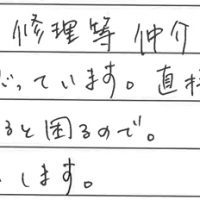 修理等 仲介
っています。直接
ると困るので。
します。